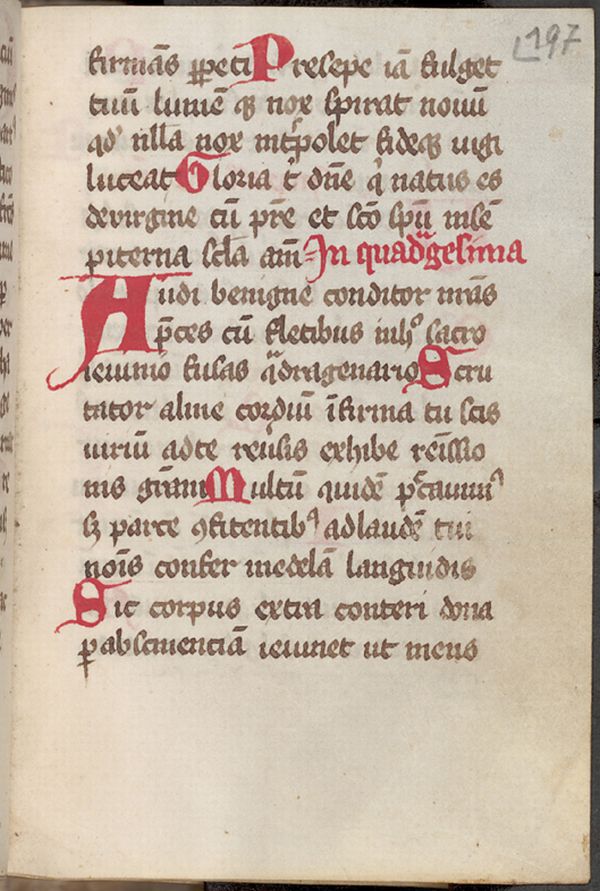 197
firmās ꝑpeti Presepe iā fulget
tuū lumē qꝫ nox spirat nouū
qd' nlla nox int'polet fideqꝫ iugi
luceat Gloria t' dn̄e q' natus es
devirgine cū pr̄e et sc̄o spū in sē
piterna sc̄la am̄ In quadragesima
Audi benigne conditor nr̄as
p̄ces cū fletibus in hꝰ sacro
ieiunio fusas qͣdragenario Scru
tator alme cordiū īfirma tu scis
uiriū ad te reu'sis exhibe remīssio
nis grām Multū quidē peccauimꝰ
sꝫ parce ꝯfitentibꝰ ad laudē tui
noīs confer medelā languidis
Sic corpus extra conteri dona
ꝑ abstinenciā ieiunet ut mens